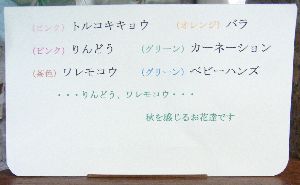 (ピンク) トルコキキョウ (オレンジ) バラ
(ピンク) りんどう (グリーン) カーネーション
(茶色) ワレモコウ (グリーン) ベビーハンズ
・・・りんどう、ワレモコウ・・・
秋を感じるお花達です